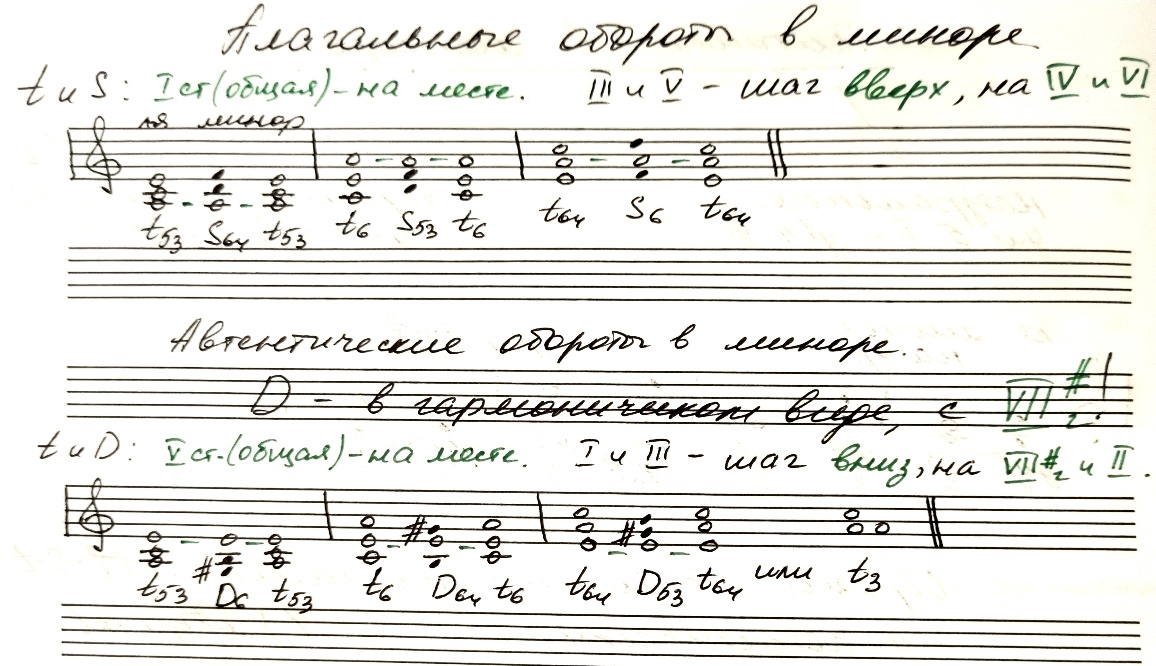 Плагальные обороты в миноре
t и S: I ст(общая)-на месте. III и V - шаг вверх, на IV и VI
ля минор
t53 S64 t53 t6 S53 t6 t64 S6 t64
Автентические обороты в миноре.
D - в гармоническом виде, с VII#г!
t и D: V ст.(общая)-на месте. I и III - шаг вниз, на VII#г и II.
t53 D6 t53 t6 D64 t6 t64 D53 t64 или t3